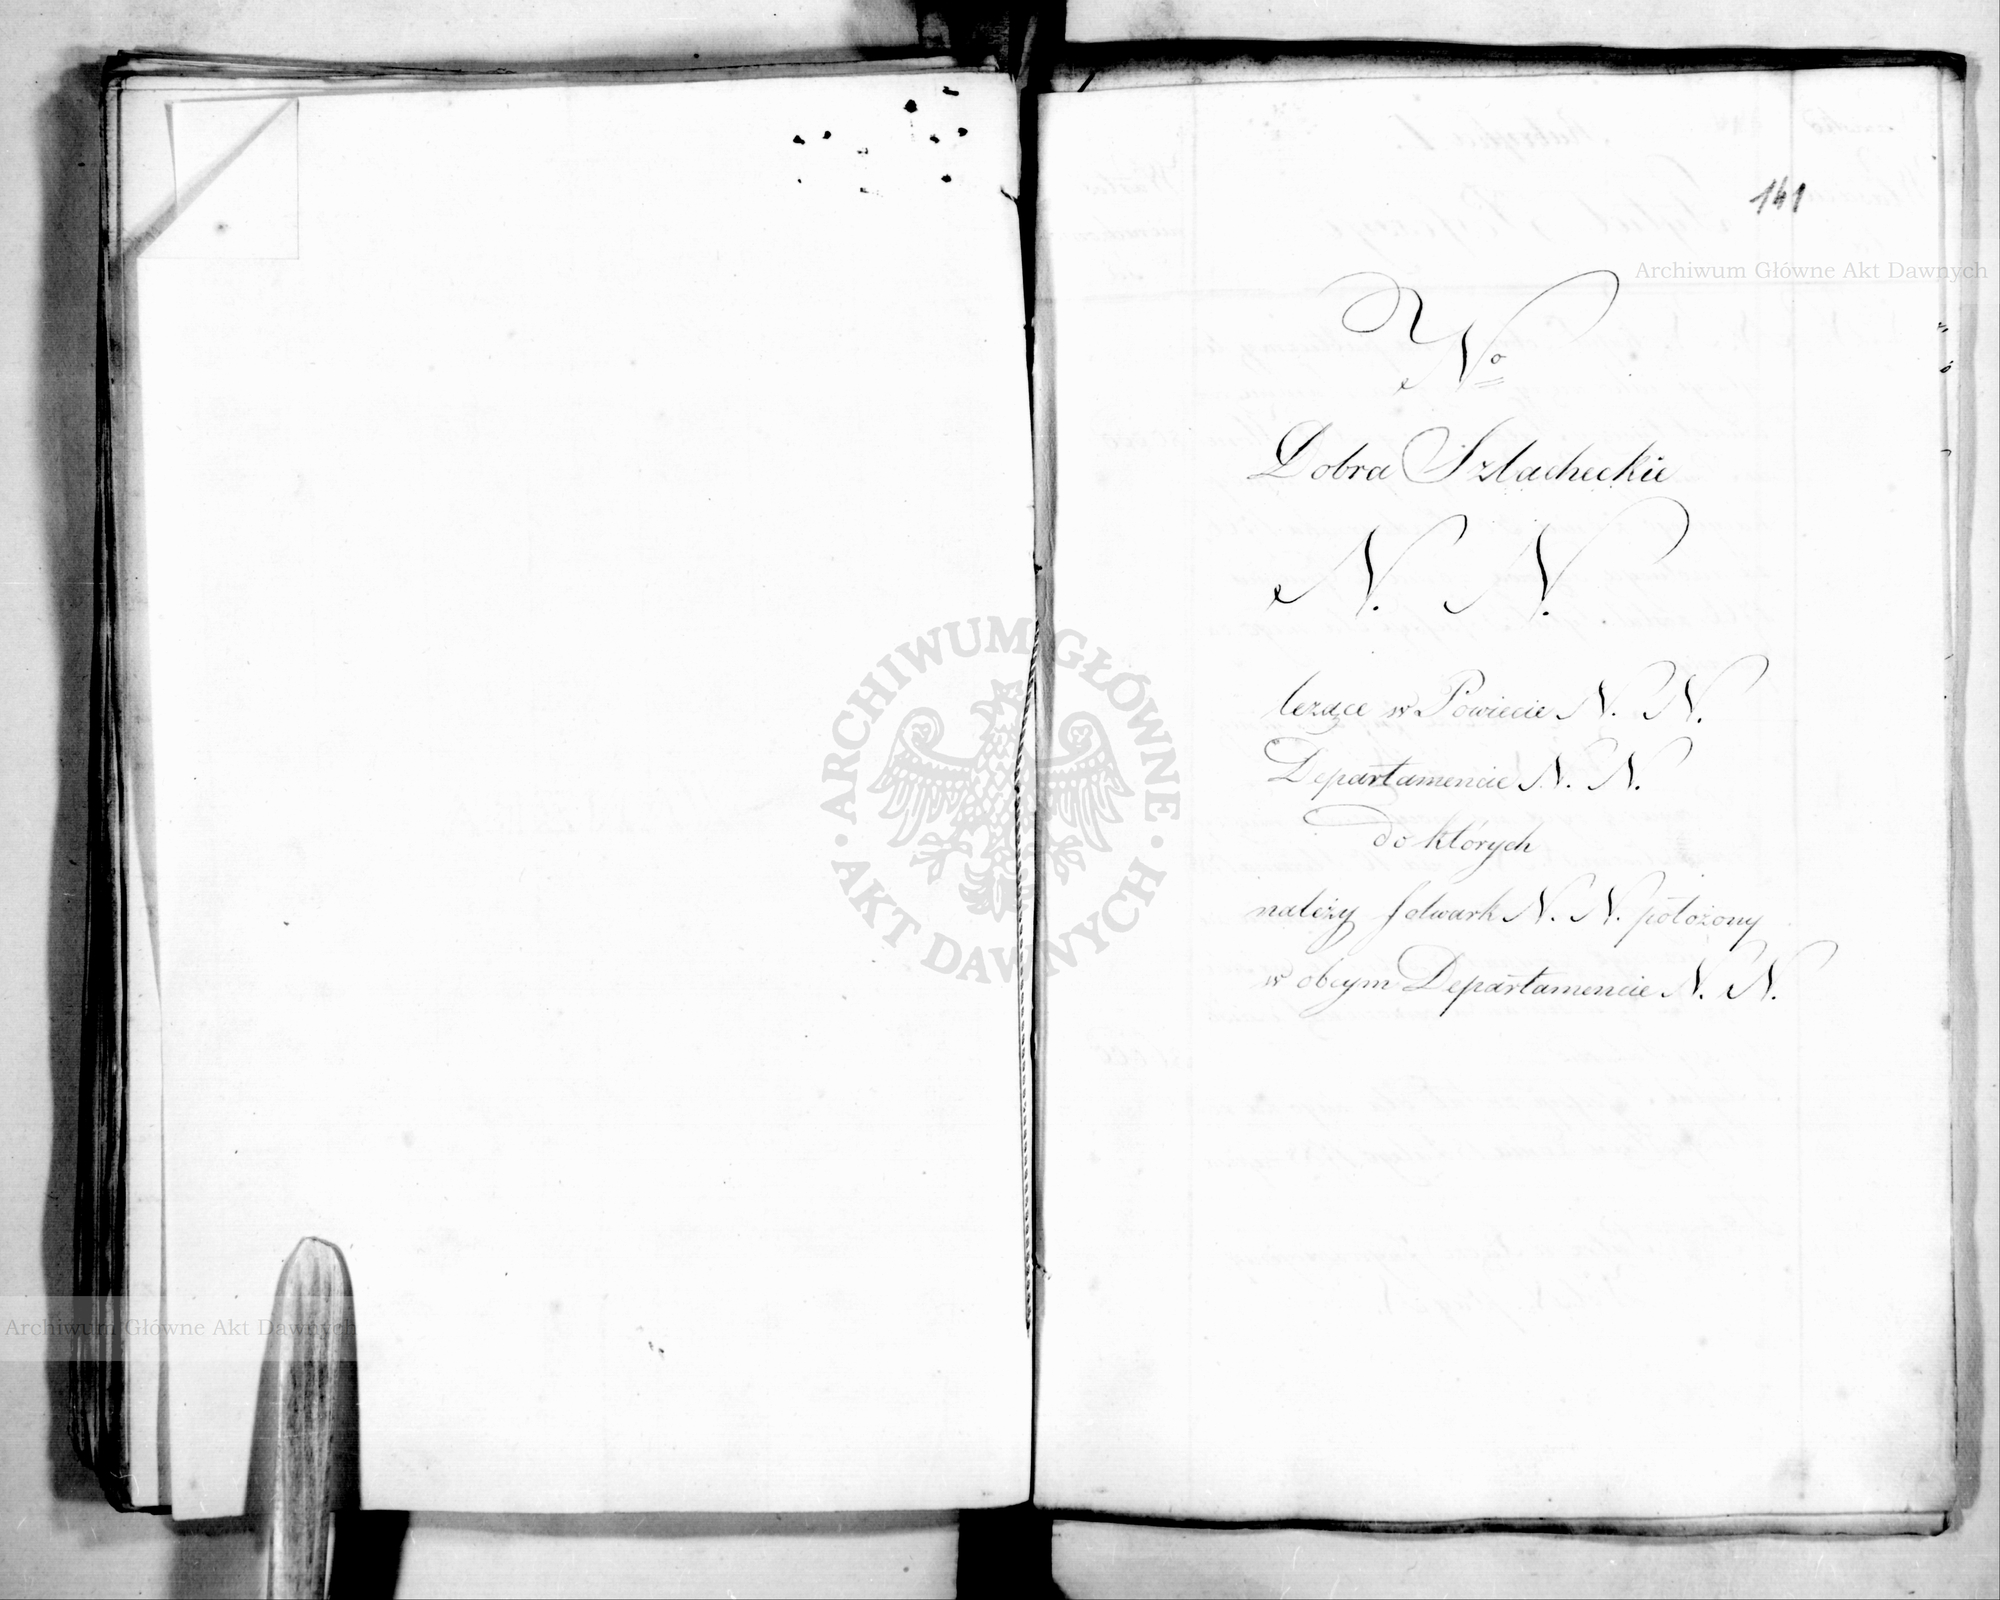 141
Archiwum Główne Akt Dawnych
No
Dobra Szlacheckie
N. N.
leżące w Powiecie N. N.
Departamencie N. N.
do których
należy folwark N. N. położony
w obcym Departamencie N. N.
ARCHIWUM GŁÓWNE
AKT DAWNYCH
Archiwum Główne Akt Dawnych